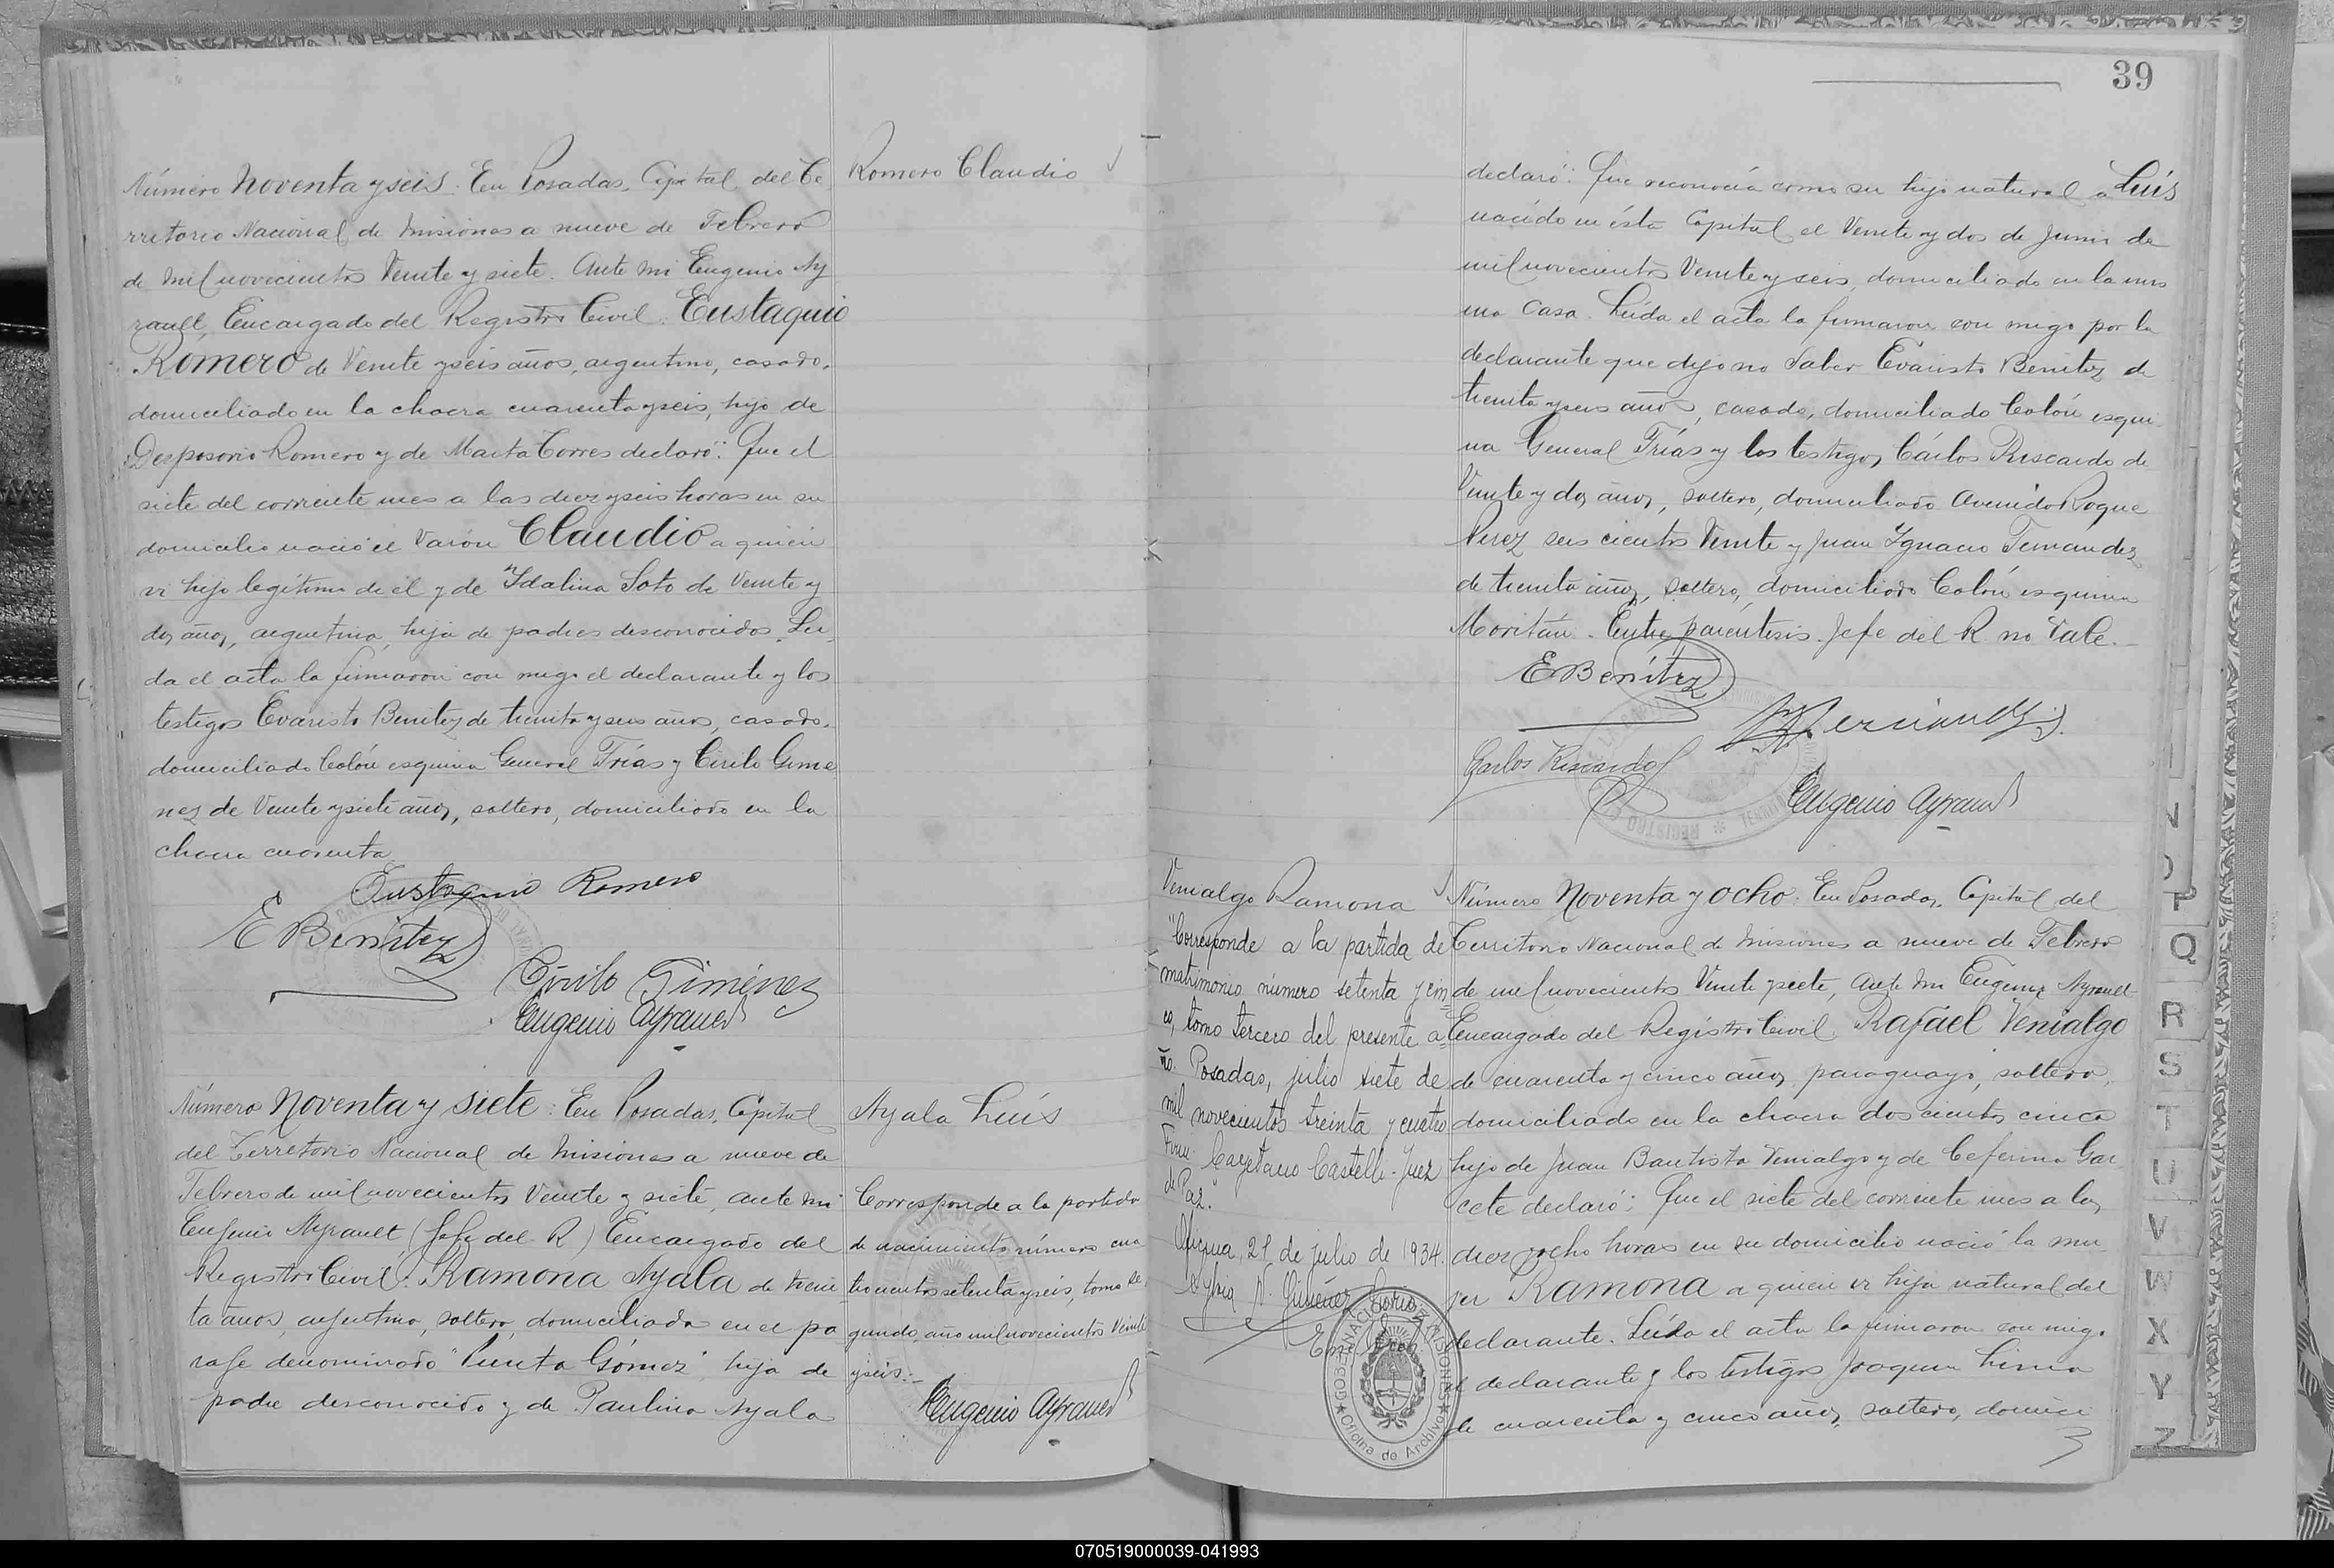 Número Noventa y seis: En Posadas, Capital del Te
Romero Claudio
rritorio Nacional de Misiones a nueve de Febrero
de mil novecientos Veinte y siete. Ante mi Eugenio Ay
rault, Encargado del Registro Civil. Eustaquio
Romero de Veinte y seis años, argentino, casado,
domiciliado en la chacra cuarenta y seis, hijo de
Desposorio Romero y de Marta Torres declaró: Que el
siete del corriente mes a las diez y seis horas en su
domicilio nació el Varón Claudio a quien
vi hijo legítimo de él y de Idalina Soto de Veinte y
dos años, argentina, hija de padres desconocidos. Leí
da el acta la firmaron con migo el declarante y los
testigos Evaristo Benitez de treinta y seis años, casado,
domiciliado Colón esquina General Frías y Cirilo Gime
nez de Veinte y siete años, soltero, domiciliado en la
chacra cuarenta
Eustaquio Romero
E Benitez
Cirilo Giménez
Eugenio Ayrault
Número Noventa y siete: En Posadas, Capital
del Territorio Nacional de Misiones a nueve de
Febrero de mil novecientos Veinte y siete, ante mi
Eugenio Ayrault (Jefe del R) Encargado del
Registro Civil: Ramona Ayala de trein
ta años, argentina, soltera, domiciliada en el pa
raje denominado "Punta Gómez" hija de
padre desconocido y de Paulina Ayala
Ayala Luís
Corresponde a la partida
de nacimiento número cua
trocientos setenta y seis, tomo se
gundo, año mil novecientos Veinte
y seis.-
Eugenio Ayrault
39
declaró: Que reconocía como su hijo natural a Luís
nacido en ésta Capital el Veinte y dos de Junio de
mil novecientos Veinte y seis, domiciliado en la mis
ma casa. Leída el acta la firmaron con migo por la
declarante que dijo no Saber Evaristo Benitez de
treinta y seis años, casado, domiciliado Colón esqui
na General Frías y los testigos Cárlos Riscardo de
Veinte y dos años, soltero, domiciliado Avenida Roque
Perez seis cientos Veinte y Juan Ygnacio Fernandez
de treinta años, soltero, domiciliado Colón esquina
Moritán. Entre paréntesis. Jefe del R no Vale.-
E Benitez
Fernandez
Carlos Riscardo
Eugenio Ayrault
Venialgo Ramona
"Corresponde a la partida de
matrimonio número setenta y cin=
co, tomo tercero del presente a=
ño. Posadas, julio siete de
mil novecientos treinta y cuatro
Firm: Cayetano Castelli-Juez
de Paz."
21 de julio de 1934.
GOBERNACION MISIONES
Oficina de Archivo
Número Noventa y Ocho: En Posadas, Capital del
Territorio Nacional de Misiones a nueve de Febrero
de mil novecientos Veinte y siete, Ante mi Eugenio Ayrault
Encargado del Registro Civil. Rafael Venialgo
de cuarenta y cinco años, paraguayo, soltero,
domiciliado en la chacra dos cientos cinco
hijo de Juan Bautista Venialgo y de Ceferina Gar
cete declaró: Que el siete del corriente mes a las
diez y ocho horas en su domicilio nació la mu
jer Ramona a quien vi hija natural del
declarante. Leída el acta la firmaron con migo
el declarante y los testigos Joaquin Lima
de cuarenta y cinco años, soltero, domici
N
P
Q
R
S
T
U
V
W
X
Y
Z
070519000039-041993